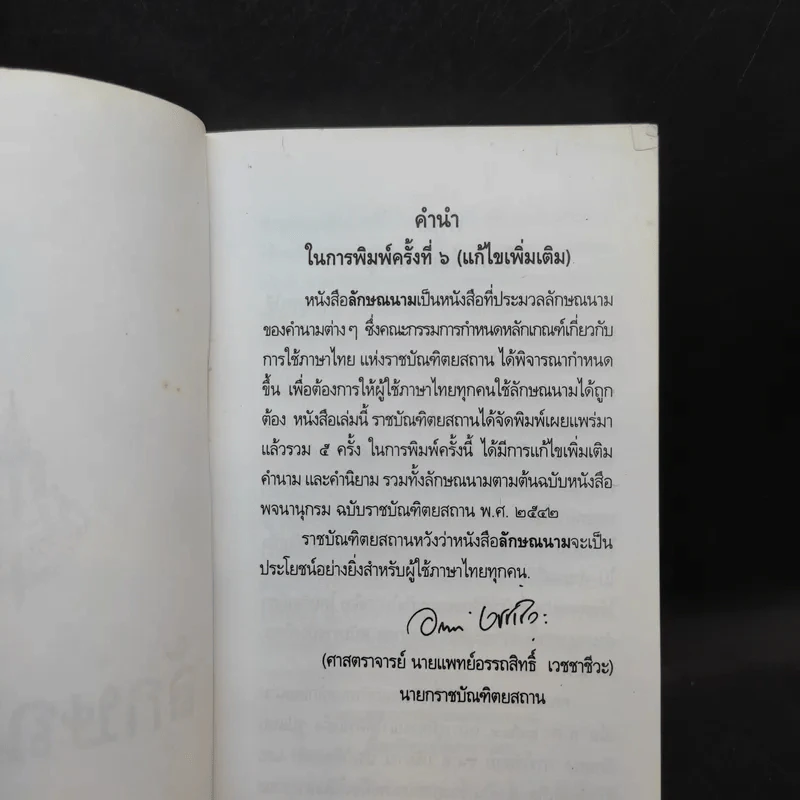 คำนำ
ในการพิมพ์ครั้งที่ ๖ (แก้ไขเพิ่มเติม)
หนังสือลักษณนามเป็นหนังสือที่ประมวลลักษณนาม
ของคำนามต่าง ๆ ซึ่งคณะกรรมการกำหนดหลักเกณฑ์เกี่ยวกับ
การใช้ภาษาไทย แห่งราชบัณฑิตยสถาน ได้พิจารณากำหนด
ขึ้น เพื่อต้องการให้ผู้ใช้ภาษาไทยทุกคนใช้ลักษณนามได้ถูก
ต้อง หนังสือเล่มนี้ ราชบัณฑิตยสถานได้จัดพิมพ์เผยแพร่มา
แล้วรวม ๕ ครั้ง ในการพิมพ์ครั้งนี้ ได้มีการแก้ไขเพิ่มเติม
คำนาม และคำนิยาม รวมทั้งลักษณนามตามต้นฉบับหนังสือ
พจนานุกรม ฉบับราชบัณฑิตยสถาน พ.ศ. ๒๕๔๒
ราชบัณฑิตยสถานหวังว่าหนังสือลักษณนามจะเป็น
ประโยชน์อย่างยิ่งสำหรับผู้ใช้ภาษาไทยทุกคน.
(ศาสตราจารย์ นายแพทย์อรรถสิทธิ์ เวชชาชีวะ)
นายกราชบัณฑิตยสถาน